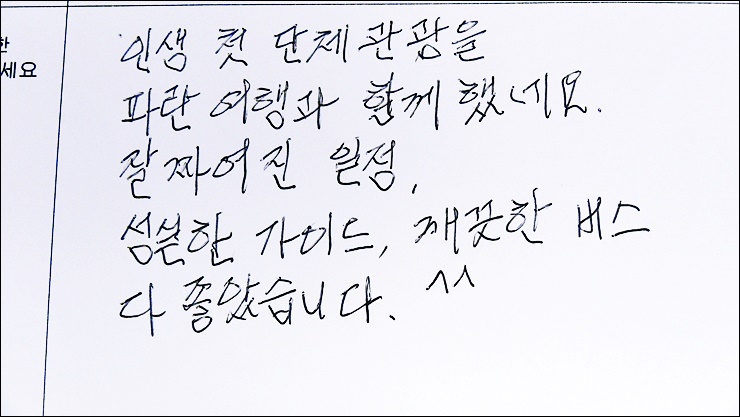 한
세요
인생 첫 단체관광을
파란여행과 함께했네요.
잘 짜여진 일정,
섬실한 가이드, 깨끗한 버스
다 좋았습니다. ^^